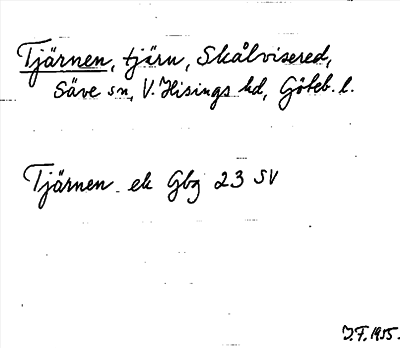 Tjärnen, tjärn, Skålvisered,
Säve sn, V. Hisings hd, Göteb. l.
Tjärnen ek Gbg 23 SV
J.F. 1955.